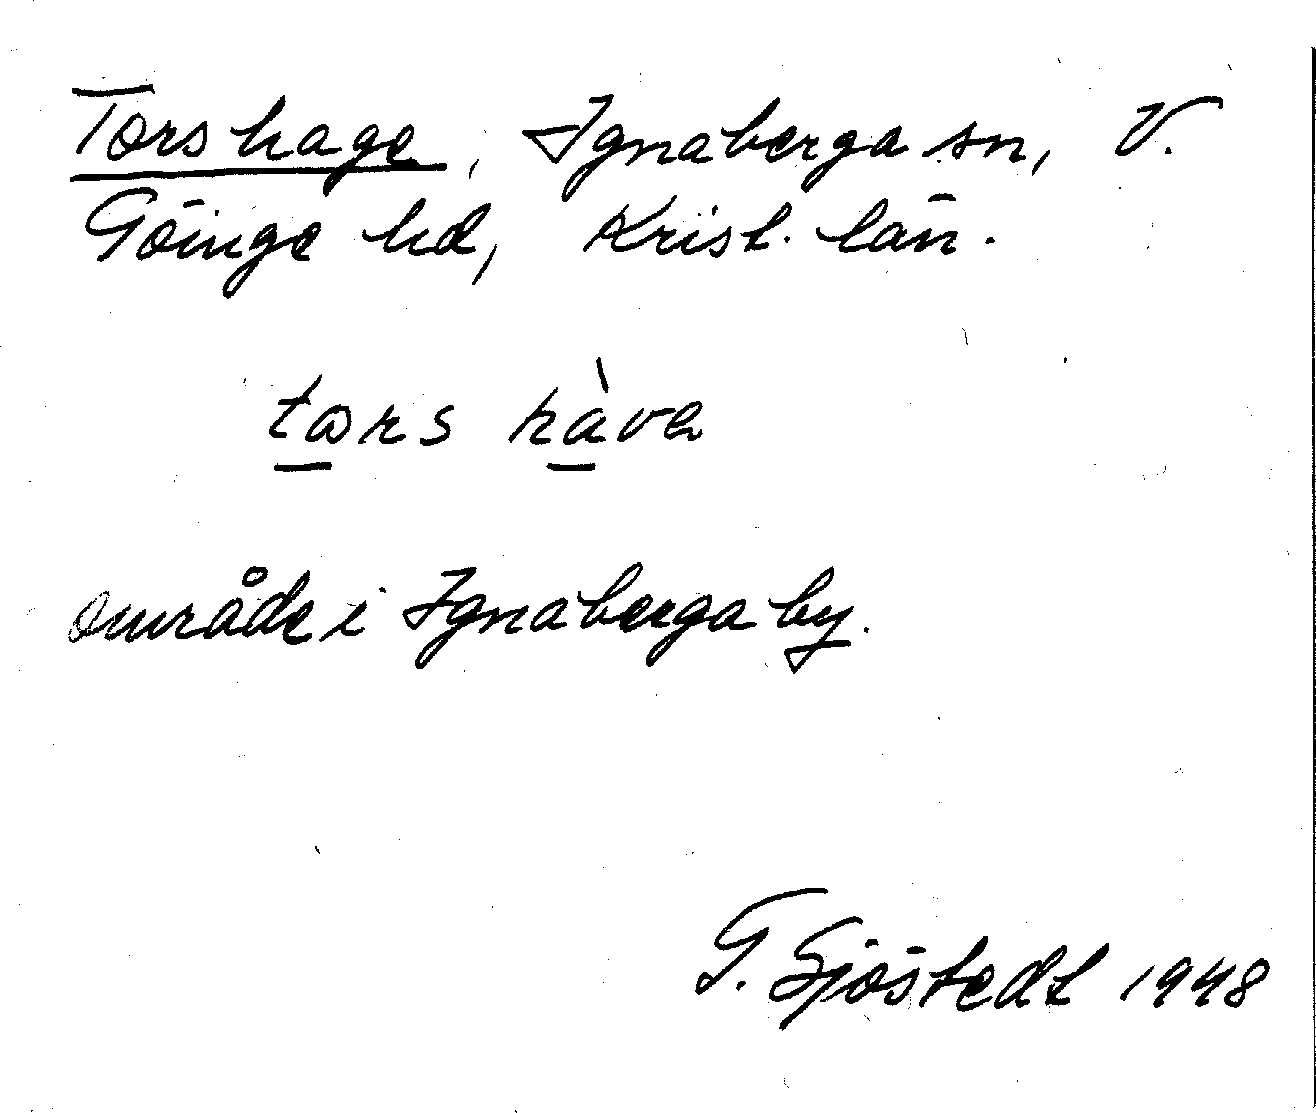 Torshage, Ignaberga sn, V.
Göinge hd, Krist. län.
tωrs hàva
område i Ignaberga by.
G. Sjöstedt 1948